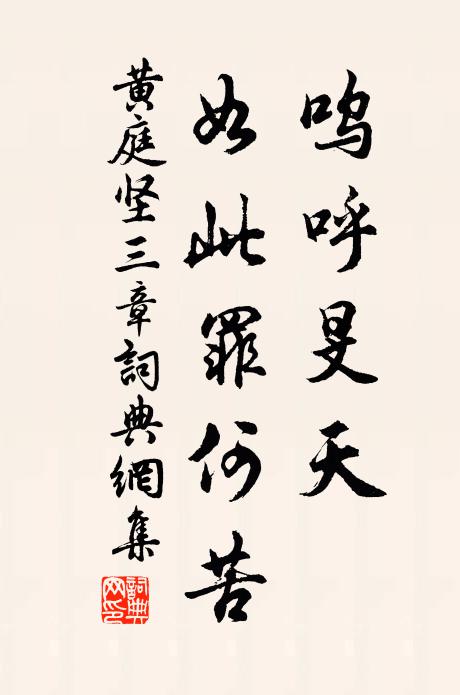 呜呼旻天
如此罪何苦
黄庭坚三章詞典網集
詞典
网印